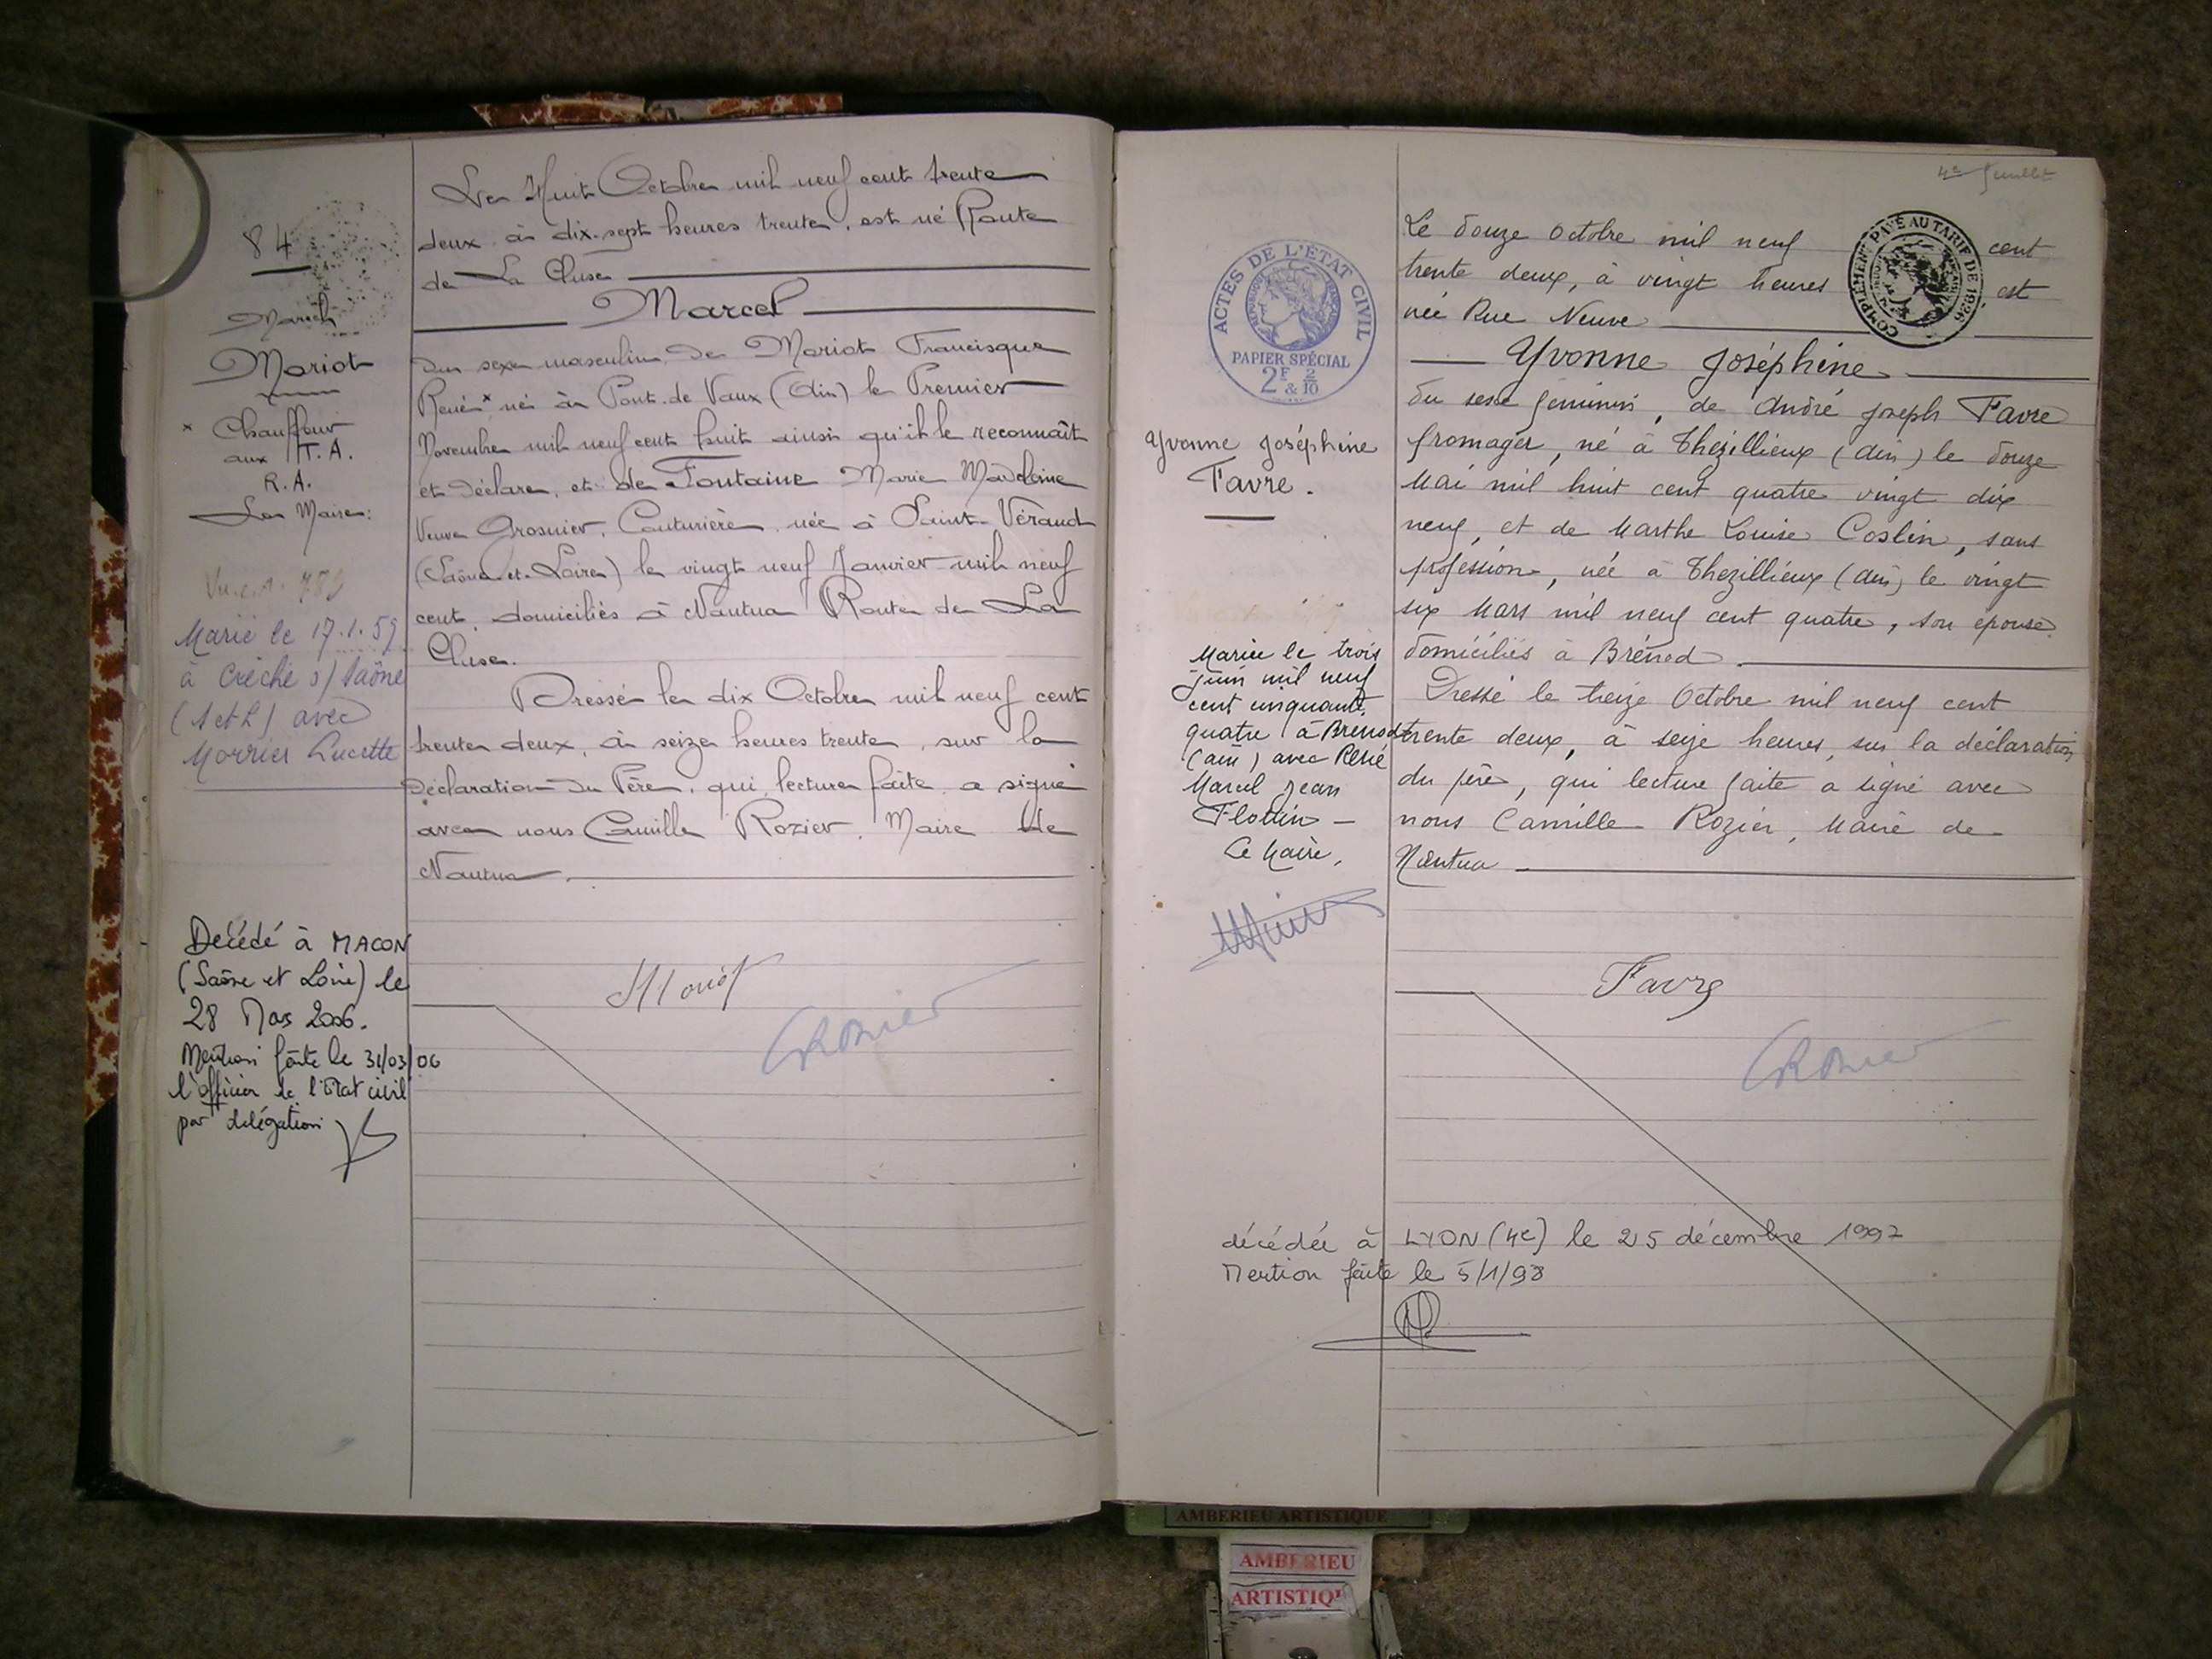 84
Marcel
Mariot
* Chauffeur
aux T.A.
R.A.
Le Maire:
Marié le 17.1.59
à Crèche s/ Saône
(S et L) avec
Morrier Lucette
Décédé à MACON
(Saône et Loire) le
28 Mars 2006.
Mention faite le 31/03/06
l'officier de l'Etat civil
par délégation
Le Huit Octobre mil neuf cent trente
deux à dix-sept heures trente, est né Route
de La Cluse
Marcel
du sexe masculin, de Mariot Francisque
René* né à Pont-de-Vaux (Ain) le Premier
Novembre mil neuf cent huit ainsi qu'il le reconnaît
et déclare, et de Fontaine Marie Madeleine
Veuve Grosnier, Couturière, née à Saint-Vérand
(Saône-et-Loire) le vingt neuf Janvier mil neuf
cent, domiciliés à Nantua Route de La
Cluse.
Dressé le dix Octobre mil neuf cent
trente deux, à seize heures trente, sur la
déclaration du Père, qui, lecture faite, a signé
avec nous Camille Rozier, Maire de
Nantua.
Mariot
CRozier
4e feuillet
ACTES DE L'ÉTAT CIVIL
PAPIER SPÉCIAL
2F & 2/10
COMPLÉMENT PAYÉ AU TARIF DE 1926
Yvonne Joséphine
Favre.
Mariée le trois
juin mil neuf
cent cinquante
quatre à Brénod
(ain) avec René
Marcel Jean
Flottin –
Le Maire,
Le douze Octobre mil neuf cent
trente deux, à vingt heures est
née Rue Neuve
Yvonne Joséphine
du sexe féminin, de André Joseph Favre
fromager, né à Thezillieux (ain) le douze
Mai mil huit cent quatre vingt dix
neuf, et de Marthe Louise Coslin, sans
profession, née à Thezillieux (ain) le vingt
six Mars mil neuf cent quatre, son épouse
domiciliés à Brénod.
Dressé le treize Octobre mil neuf cent
trente deux, à seize heures, sur la déclaration
du père, qui lecture faite a signé avec
nous Camille Rozier, Maire de
Nantua
Favre
CRozier
décédée à LYON (4e) le 25 décembre 1997
Mention faite le 5/1/98
AMBERIEU ARTISTIQUE
AMBERIEU
ARTISTIQU